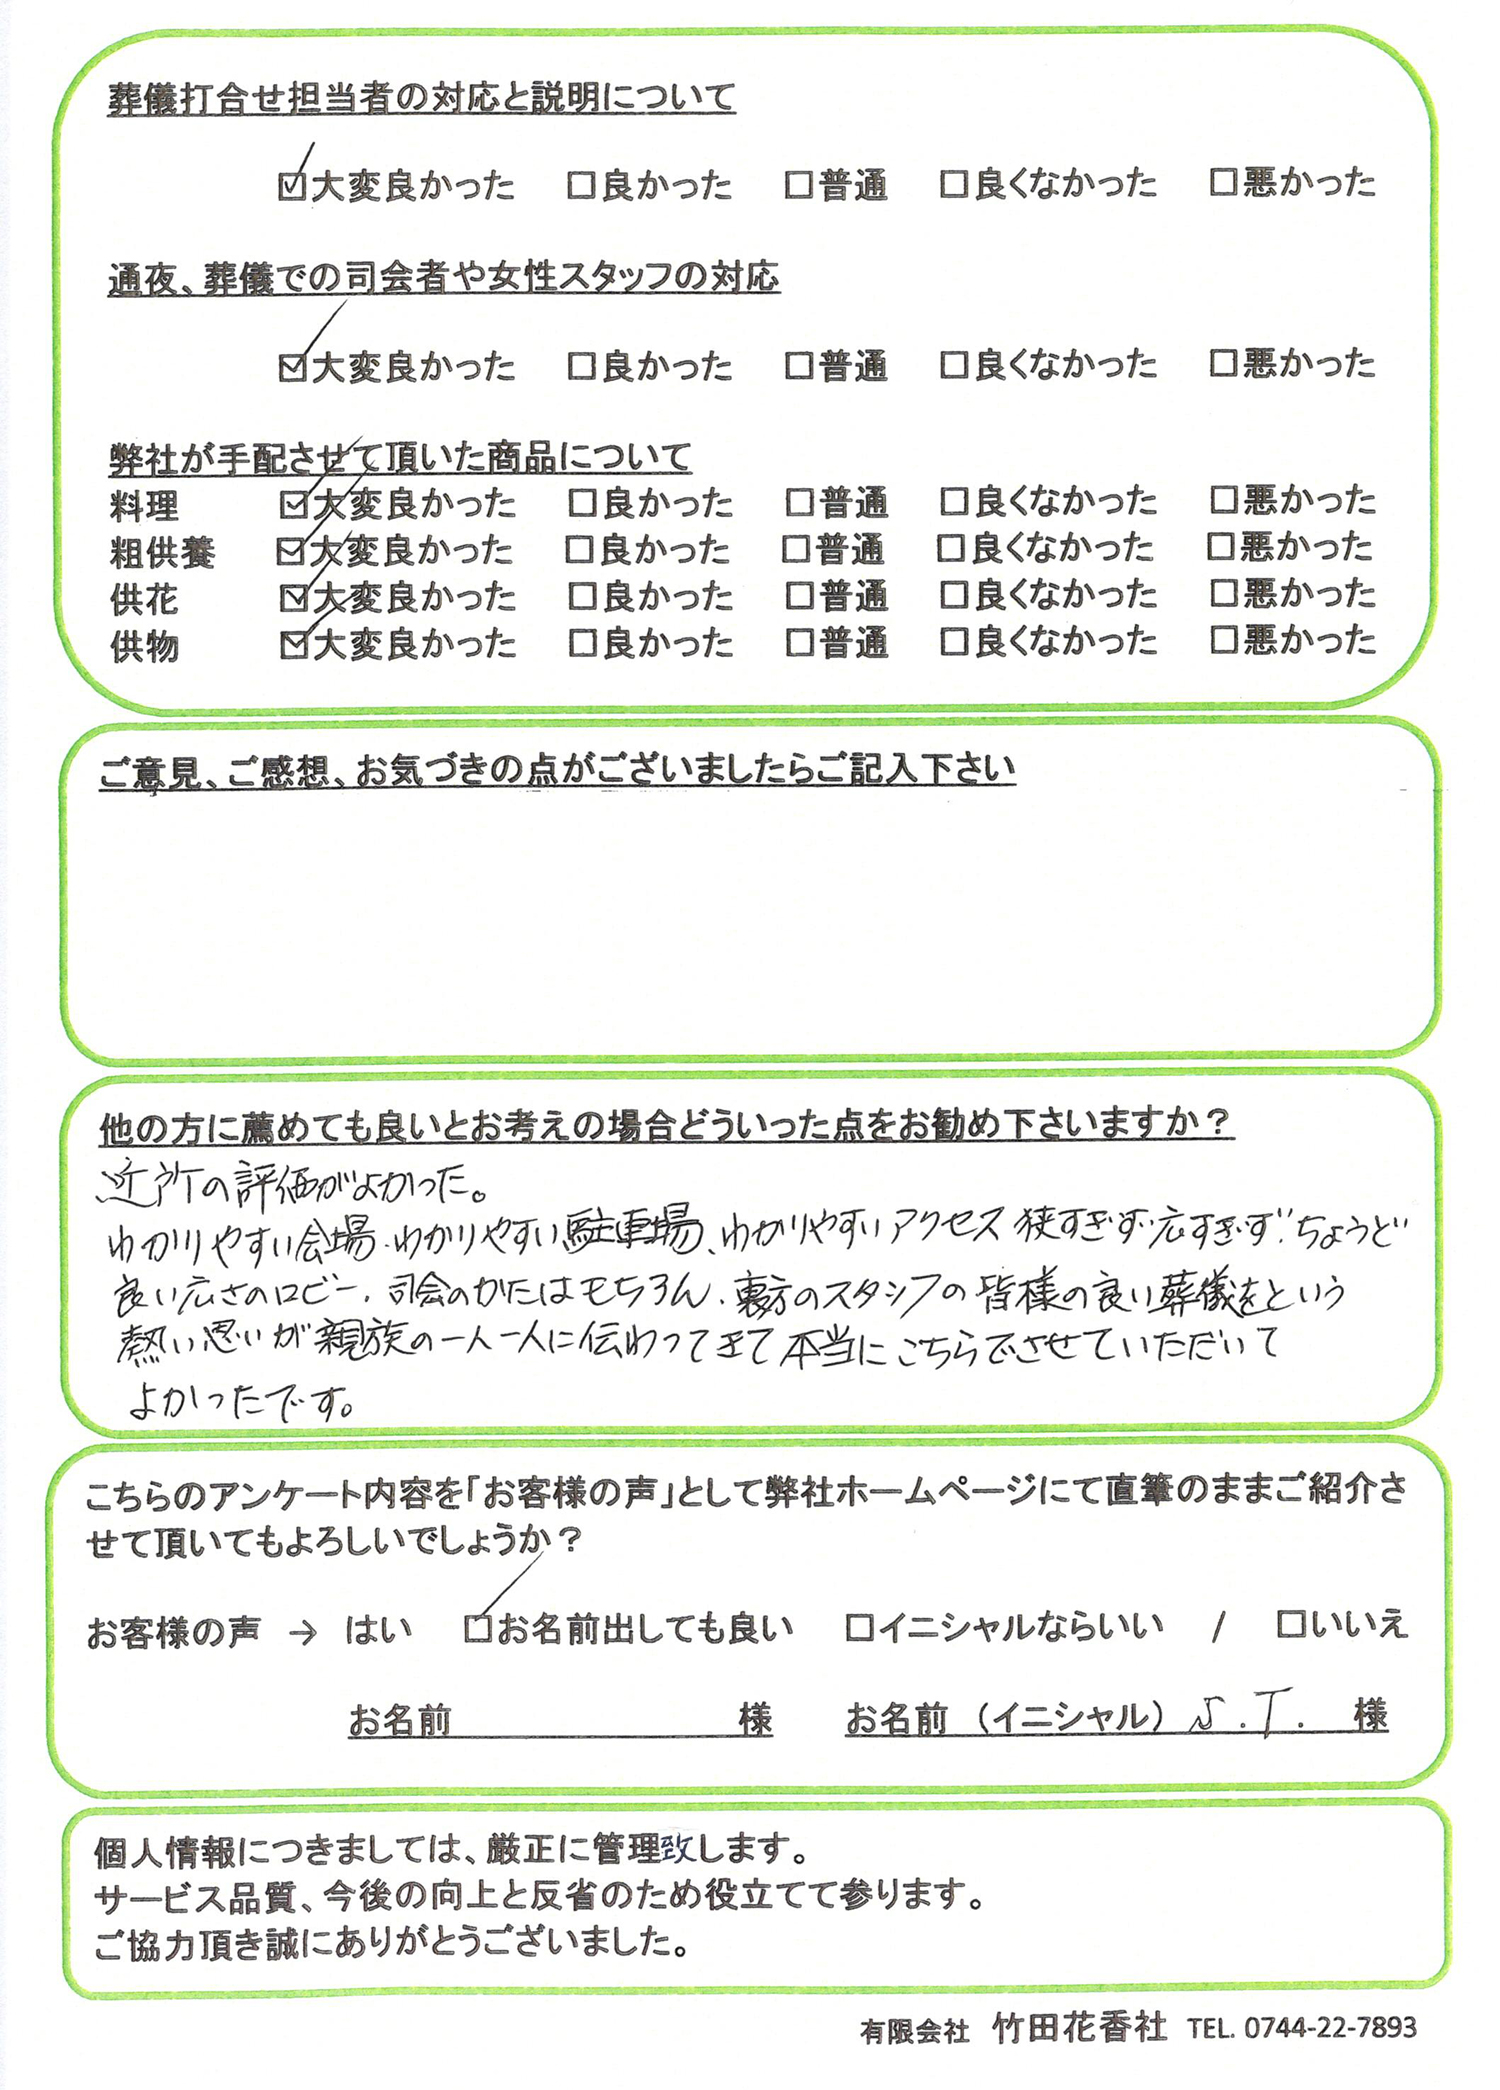 葬儀打合せ担当者の対応と説明について
☑大変良かった □良かった □普通 □良くなかった □悪かった
通夜、葬儀での司会者や女性スタッフの対応
☑大変良かった □良かった □普通 □良くなかった □悪かった
弊社が手配させて頂いた商品について
料理 ☑大変良かった □良かった □普通 □良くなかった □悪かった
粗供養 ☑大変良かった □良かった □普通 □良くなかった □悪かった
供花 ☑大変良かった □良かった □普通 □良くなかった □悪かった
供物 ☑大変良かった □良かった □普通 □良くなかった □悪かった
ご意見、ご感想、お気づきの点がございましたらご記入下さい
他の方に薦めても良いとお考えの場合どういった点をお勧め下さいますか？
近所の評価がよかった。
わかりやすい会場、わかりやすい駐車場、わかりやすいアクセス 狭すぎず広すぎず、ちょうど
良い広さのロビー、司会のかたはもちろん、裏方のスタッフの皆様の良い葬儀をという
熱い思いが親族の一人一人に伝わってきて本当にこちらでさせていただいて
よかったです。
こちらのアンケート内容を「お客様の声」として弊社ホームページにて直筆のままご紹介さ
せて頂いてもよろしいでしょうか？
お客様の声 → はい ☑お名前出しても良い □イニシャルならいい / □いいえ
お名前 様 お名前（イニシャル）S.T. 様
個人情報につきましては、厳正に管理致します。
サービス品質、今後の向上と反省のため役立てて参ります。
ご協力頂き誠にありがとうございました。
有限会社 竹田花香社 TEL. 0744-22-7893